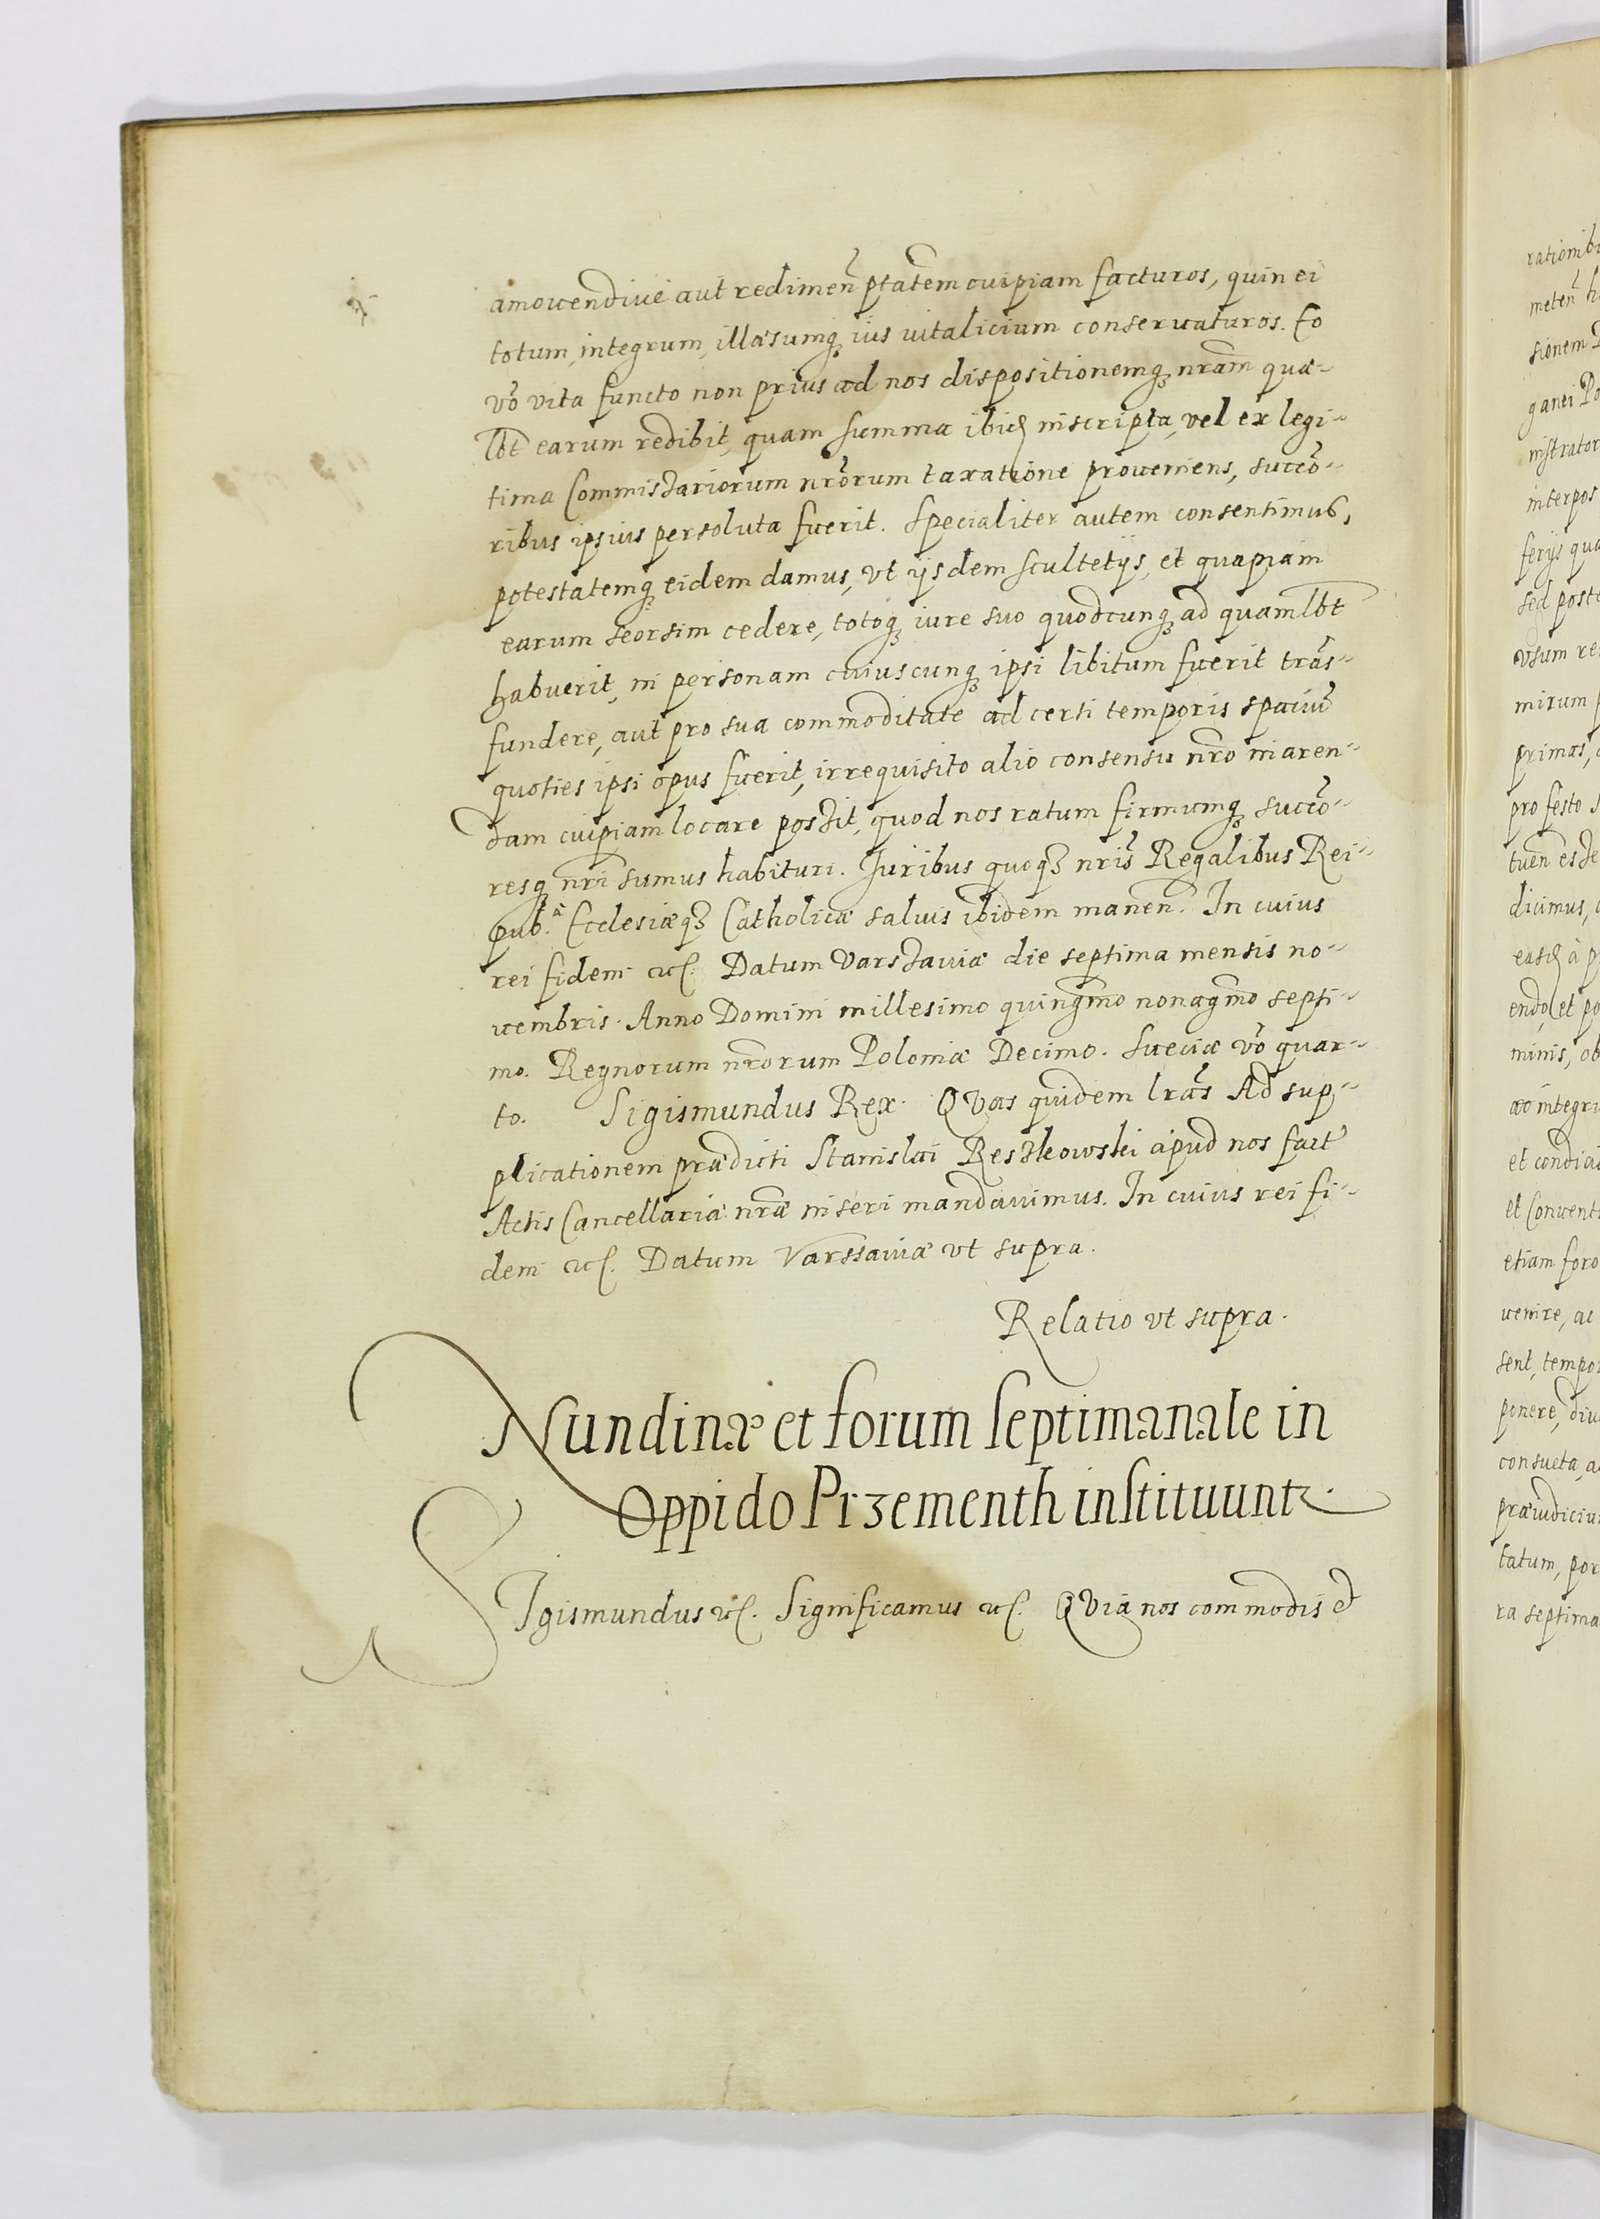 amovendive aut redimen̄ ptatem cuipiam facturos, quin ei
totum, integrum, illæsumq́ꝫ ius vitalicium conservaturos. Eo
vō vita functo non prius ad nos dispositionemqꝫ nram̄ quæ-
lbt earum redibit, quam summa ibid inscripta, vel ex legi-
tima Commissariorum nrōrum taxatione proveniens, succō-
ribus ipsius persoluta fuerit. Specialiter autem consentimus,
potestatemqꝫ eidem damus, vt ijsdem scultetijs, et quapiam
earum seorsim cedere, totoqꝫ iure suo quodcunqꝫ ad quamlbt
habuerit, in personam cuiuscunqꝫ ipsi libitum fuerit trās-
fundere, aut pro sua commoditate ad certi temporis spaiū
quoties ipsi opus fuerit, irrequisito alio consensu nrō in aren-
dam cuipiam locare possit, quod nos ratum firmumqꝫ succō-
resqꝫ nrī sumus habituri. Iuribus quoqꝫ nrīs Regalibus Rei-
pub.ᵃ Ecclesiæqꝫ Catholicæ salvis ibidem manen̄. In cuius
rei fidem etc. Datum Varssaviæ die septima mensis no-
vembris. Anno Domini millesimo quingmo nonagmo septi-
mo. Regnorum nrōrum Poloniæ Decimo. Sueciæ vō quar-
to. Sigismundus Rex. QVas quidem lrās Ad sup-
plicationem prædicti Stanislai Reszkowski apud nos fact
Actis Cancellariæ nræ inseri mandavimus. In cuius rei fi-
dem etc. Datum Varssaviæ vt supra.
Relatio vt supra.
Nundinæ et forum septimanale in
Oppido Przementh instituuntr.
SIgismundus etc. Significamus etc. QVia nos commodis et
rationib
meten̄ h
sionem
ganei Po
nistrator
interpos
ferijs qua
sed poste
vsum re
mirum p
primas,
pro festo
tuen̄ esse
dicimus,
easd à p
endo, et po
minis, ob
ac integr
et condic
et Convent
etiam foro
venire, ac
sent, tempo
ponere, div
consueta, a
præiudiciu
tatum, por
ra septima